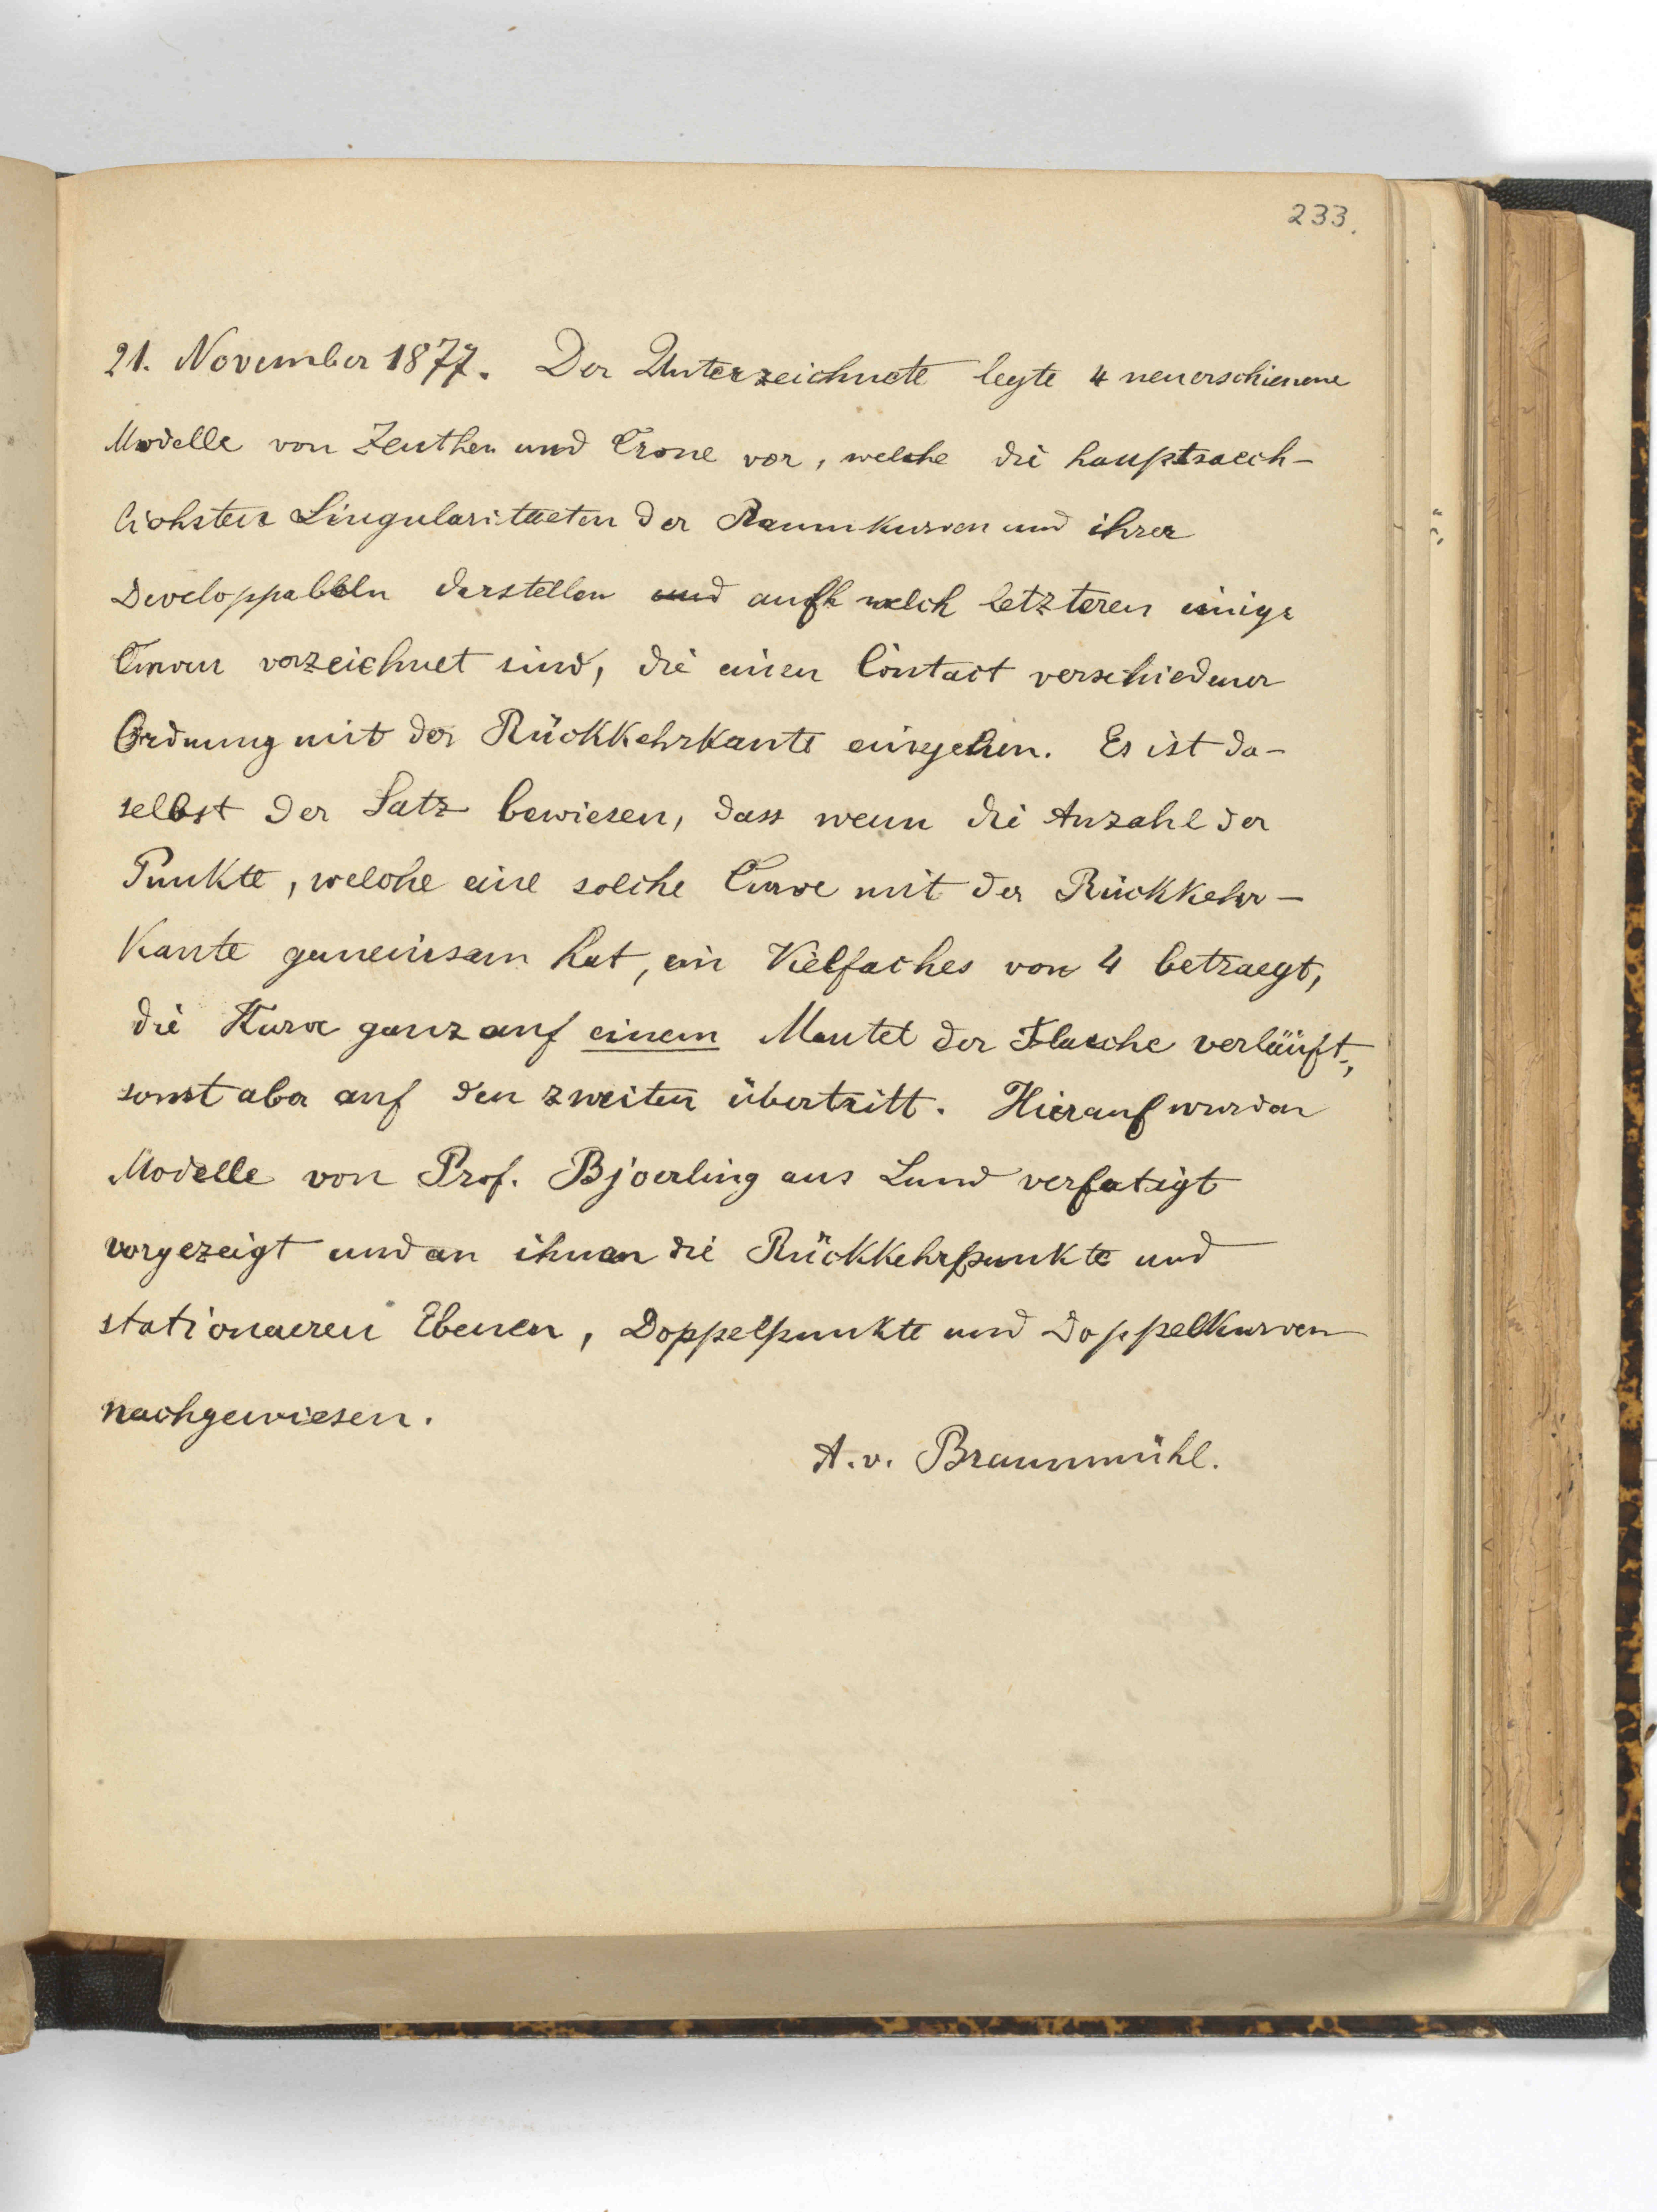 233.
21. November 1877. Der Unterzeichnete legte 4 neuerschienene
Modelle von Zeuthen und Crone vor, welche die hauptsaech-
lichsten Singularitaeten der Raumkurven und ihrer
Developpabeln darstellen und auf welch letzteren einige
Curven verzeichnet sind, die einen Contact verschiedener
Ordnung mit der Rückkehrkante eingehen. Es ist da-
selbst der Satz bewiesen, dass wenn die Anzahl der
Punkte, welche eine solche Curve mit der Rückkehr-
kante gemeinsam hat, ein Vielfaches von 4 betraegt,
die Kurve ganz auf einem Mantel der Flaeche verläuft,
sonst aber auf den zweiten übertritt. Hierauf wurden
Modelle von Prof. Bjoerling aus Lund verfertigt
vorgezeigt und an ihnen die Rückkehrpunkte und
stationaeren Ebenen, Doppelpunkte und Doppelkurven
nachgewiesen.
A. v. Braunmühl.